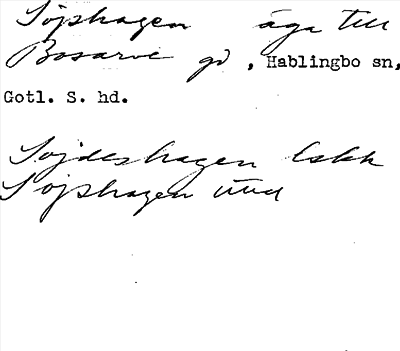 Söjshagen äga till
Bosarve gd, Hablingbo sn,
Gotl. S. hd.
Söjdeshagen lskk
Söjshagen uttal